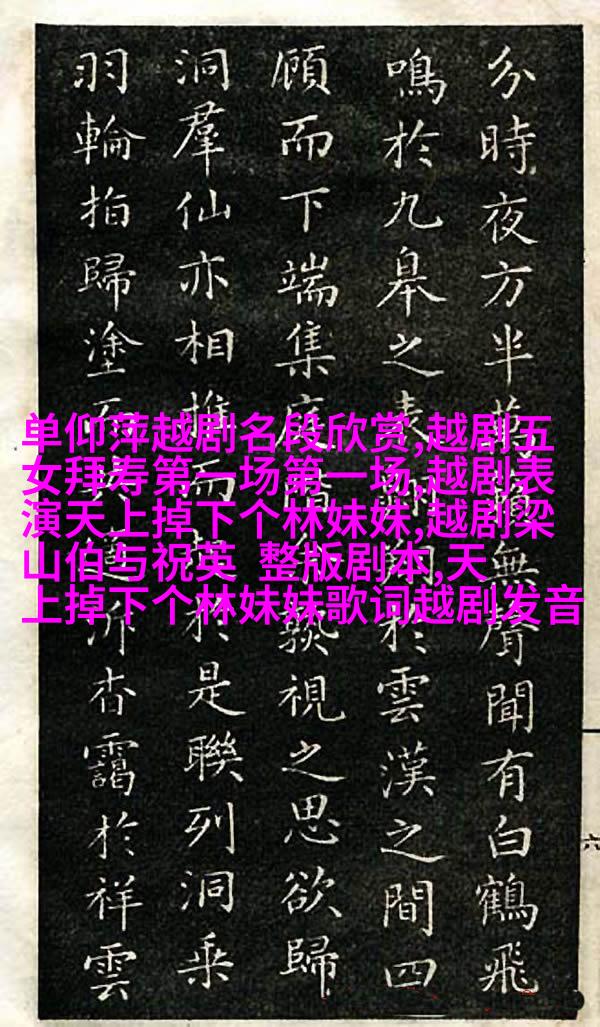 分時夜方半萬籟無聲聞有白鶴飛
鳴於九皋之表翱翔於雲漢之間四
顧而下端集庭階駭視之思欲歸
洞羣仙亦相推而於是聯列洞乘
羽輪指歸塗杳靄於祥雲
单仰萍越剧名段欣赏,越剧五
女拜寿第一场第一场,越剧表
演天上掉下个林妹妹,越剧梁
山伯与祝英 整版剧本,天
上掉下个林妹妹歌词越剧发音
六